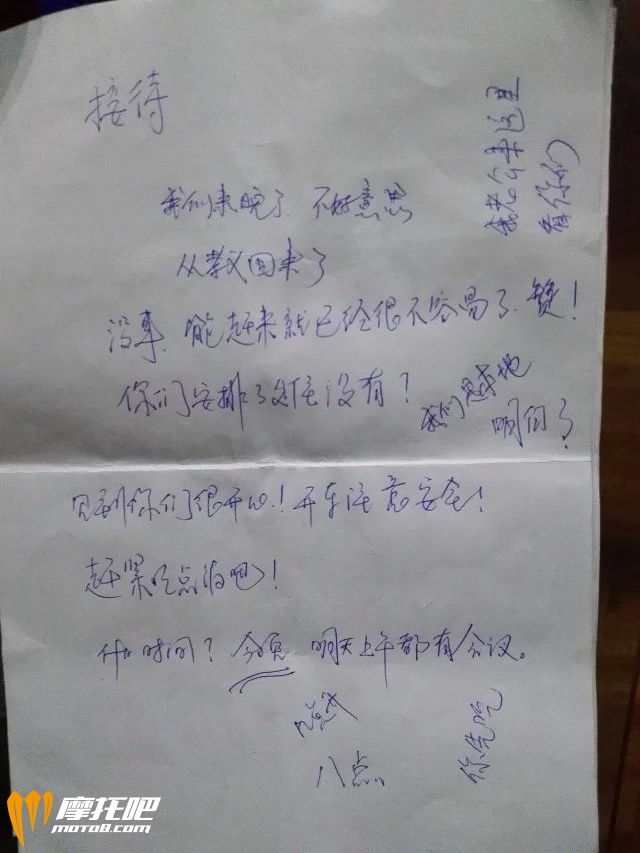 接待
我们来晚了.不好意思
从教义回来了
没事.能赶来就已经很不容易了.赞!
你们安排了住没有?
我们
明白了
见到你们很开心!开车注意安全!
赶紧吃点油吧!
什么时间? 明天上午都有会议。
八点
你先吃
来这里
看你们
摩托吧
MOTO8.COM